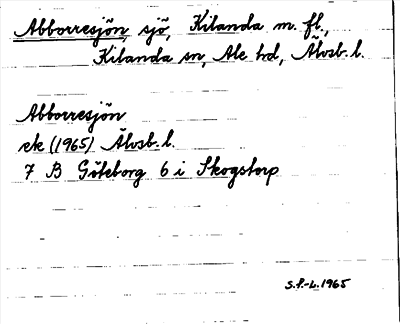 Abborresjön, sjö, Kilanda m. fl.,
Kilanda sn, Ale hd, Älvsb. l.
Abborresjön
ek (1965) Älvsb. l.
7 B Göteborg 6 i Skogstorp
S.F.-L. 1965